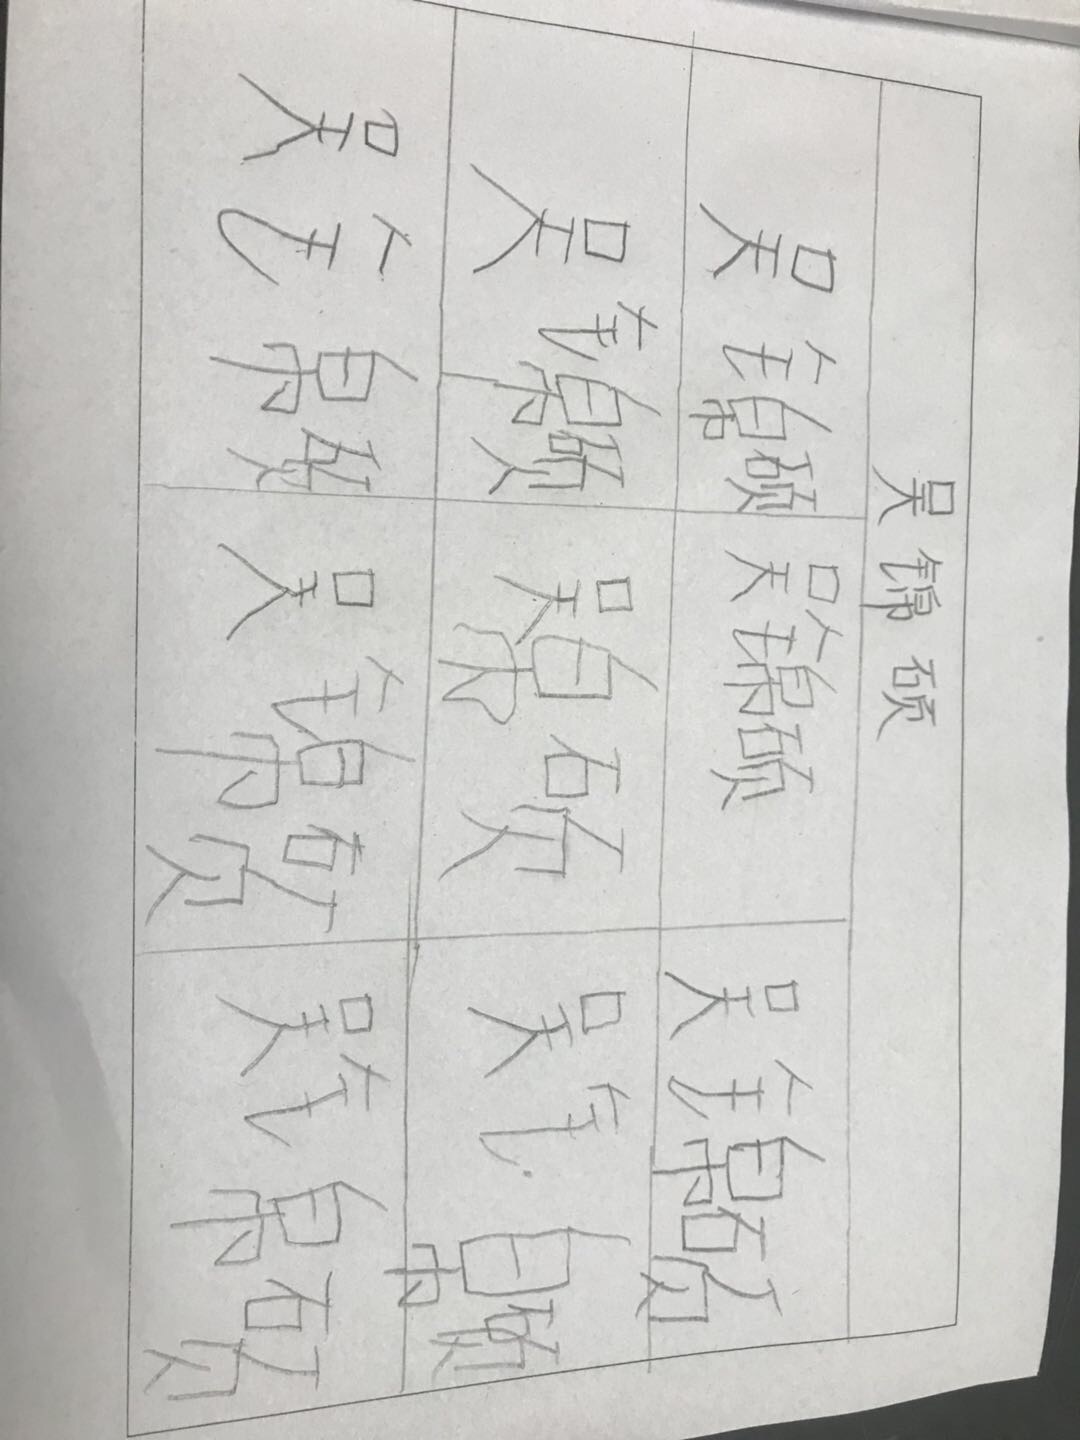 吴锦硕
吴锦硕 吴锦硕 吴锦硕
吴锦硕 吴帛硕 吴锦硕
吴锦硕 吴锦硕 吴锦硕